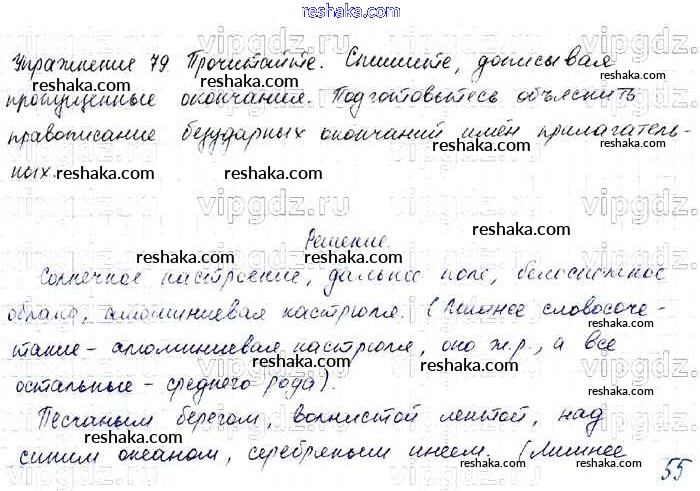 reshaka.com
Упражнение 79. Прочитайте. Спишите, дописывая
пропущенные окончания. Подготовьтесь объяснить
правописание безударных окончаний имён прилагатель-
ных.
Решение.
Солнечное настроение, дальнее поле, белоснежное
облако, алюминиевая кастрюля. (Лишнее словосоче-
тание - алюминиевая кастрюля, оно ж.р., а все
остальные - среднего рода).
Песчаным берегом, волнистой лентой, над
синим океаном, серебряным инеем. (Лишнее
55